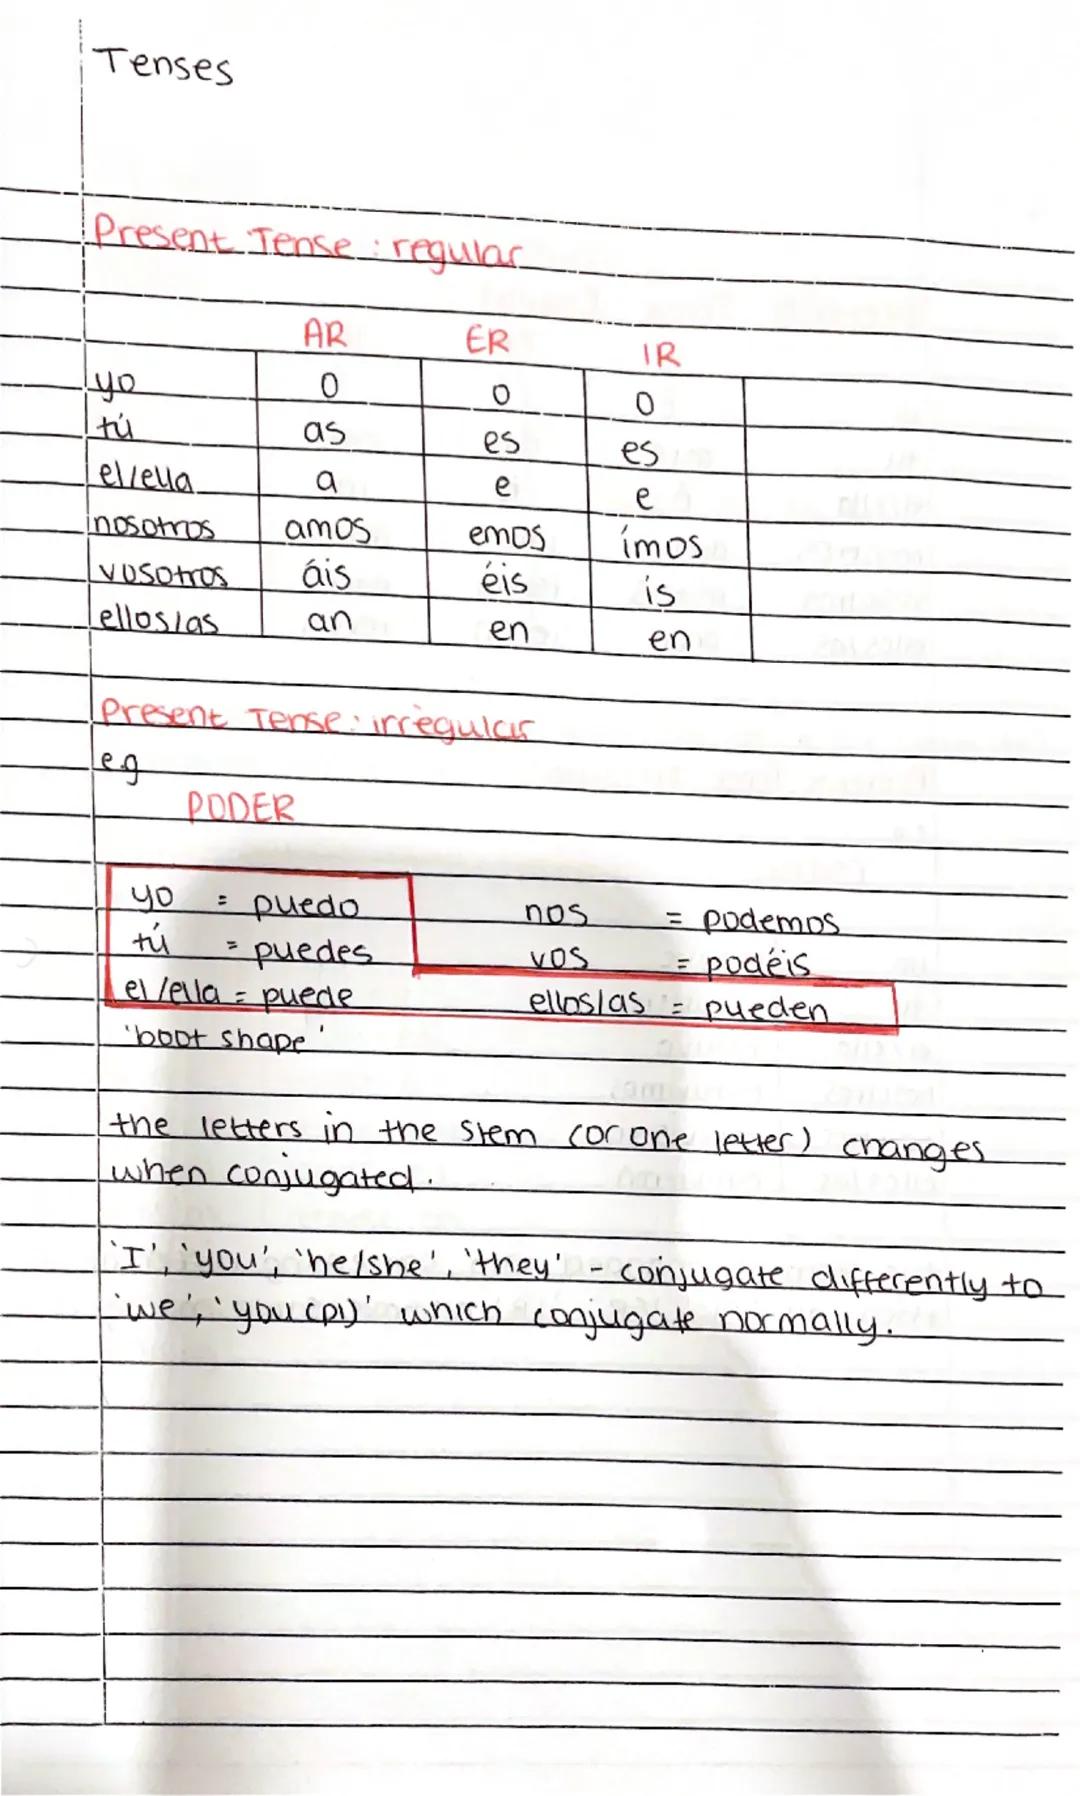 Tenses
Present Tense : regular
AR ER IR
yo o o o
tú as es es
el/ella a e e
nosotros amos emos imos
vosotros áis éis ís
ellos/as an en en
Present Tense : irregular
e.g
PODER
yo = puedo nos = podemos
tú = puedes vos = podéis
el/ella = puede ellos/as = pueden
'boot shape'
the letters in the stem (or one letter) changes
when conjugated.
'I', 'you', 'he/she', 'they' - conjugate differently to
'we', 'you (pl)' which conjugate normally.